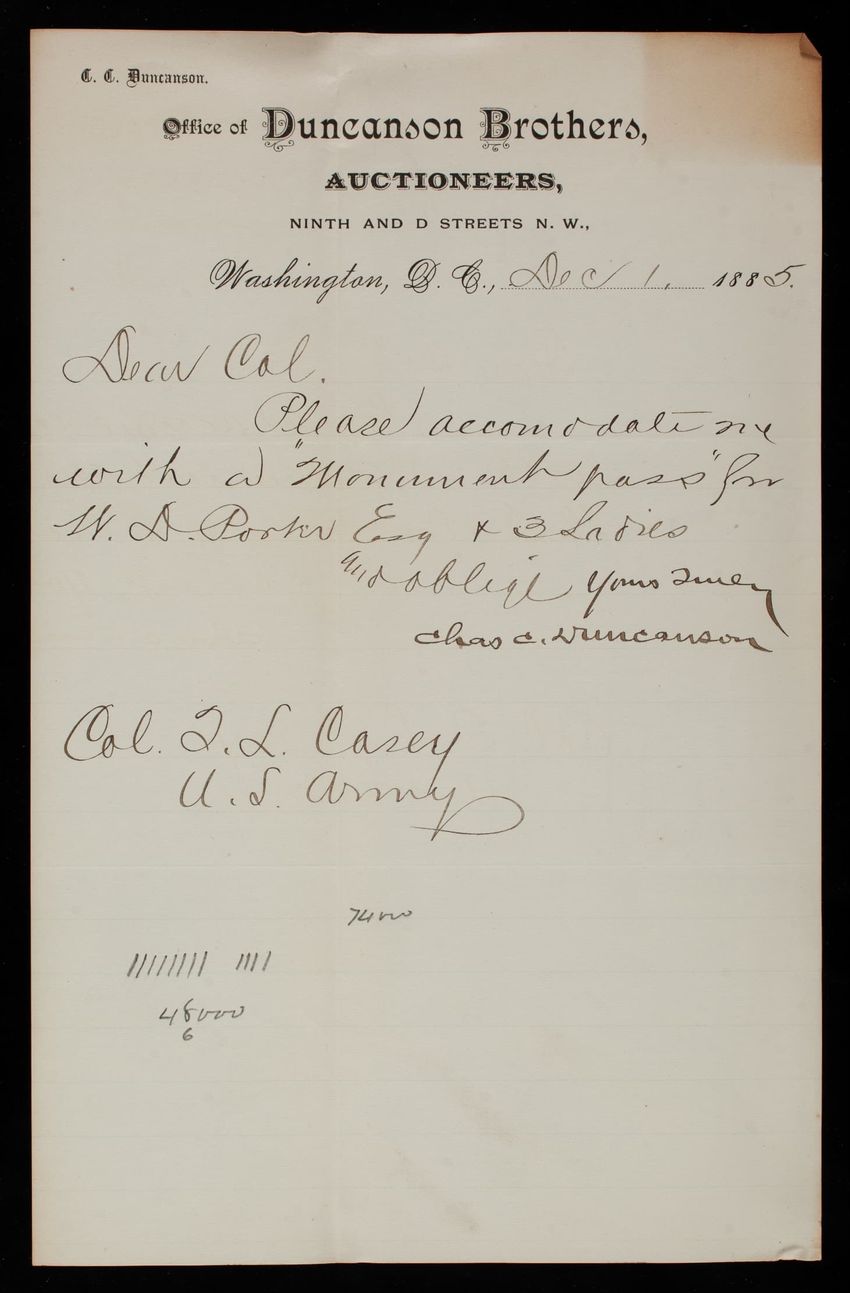 C. C. Duncanson.
Office of Duncanson Brothers,
AUCTIONEERS,
NINTH AND D STREETS N. W.,
Washington, D. C., Dec 1, 1885.
Dear Col.
Please accomodate me
with a "Monument pass" for
W. D. Porter Esq & 3 Ladies
and oblige Yours Truly
Chas C. Duncanson
Col. T. L. Casey
U. S. Army
74000
48000
6